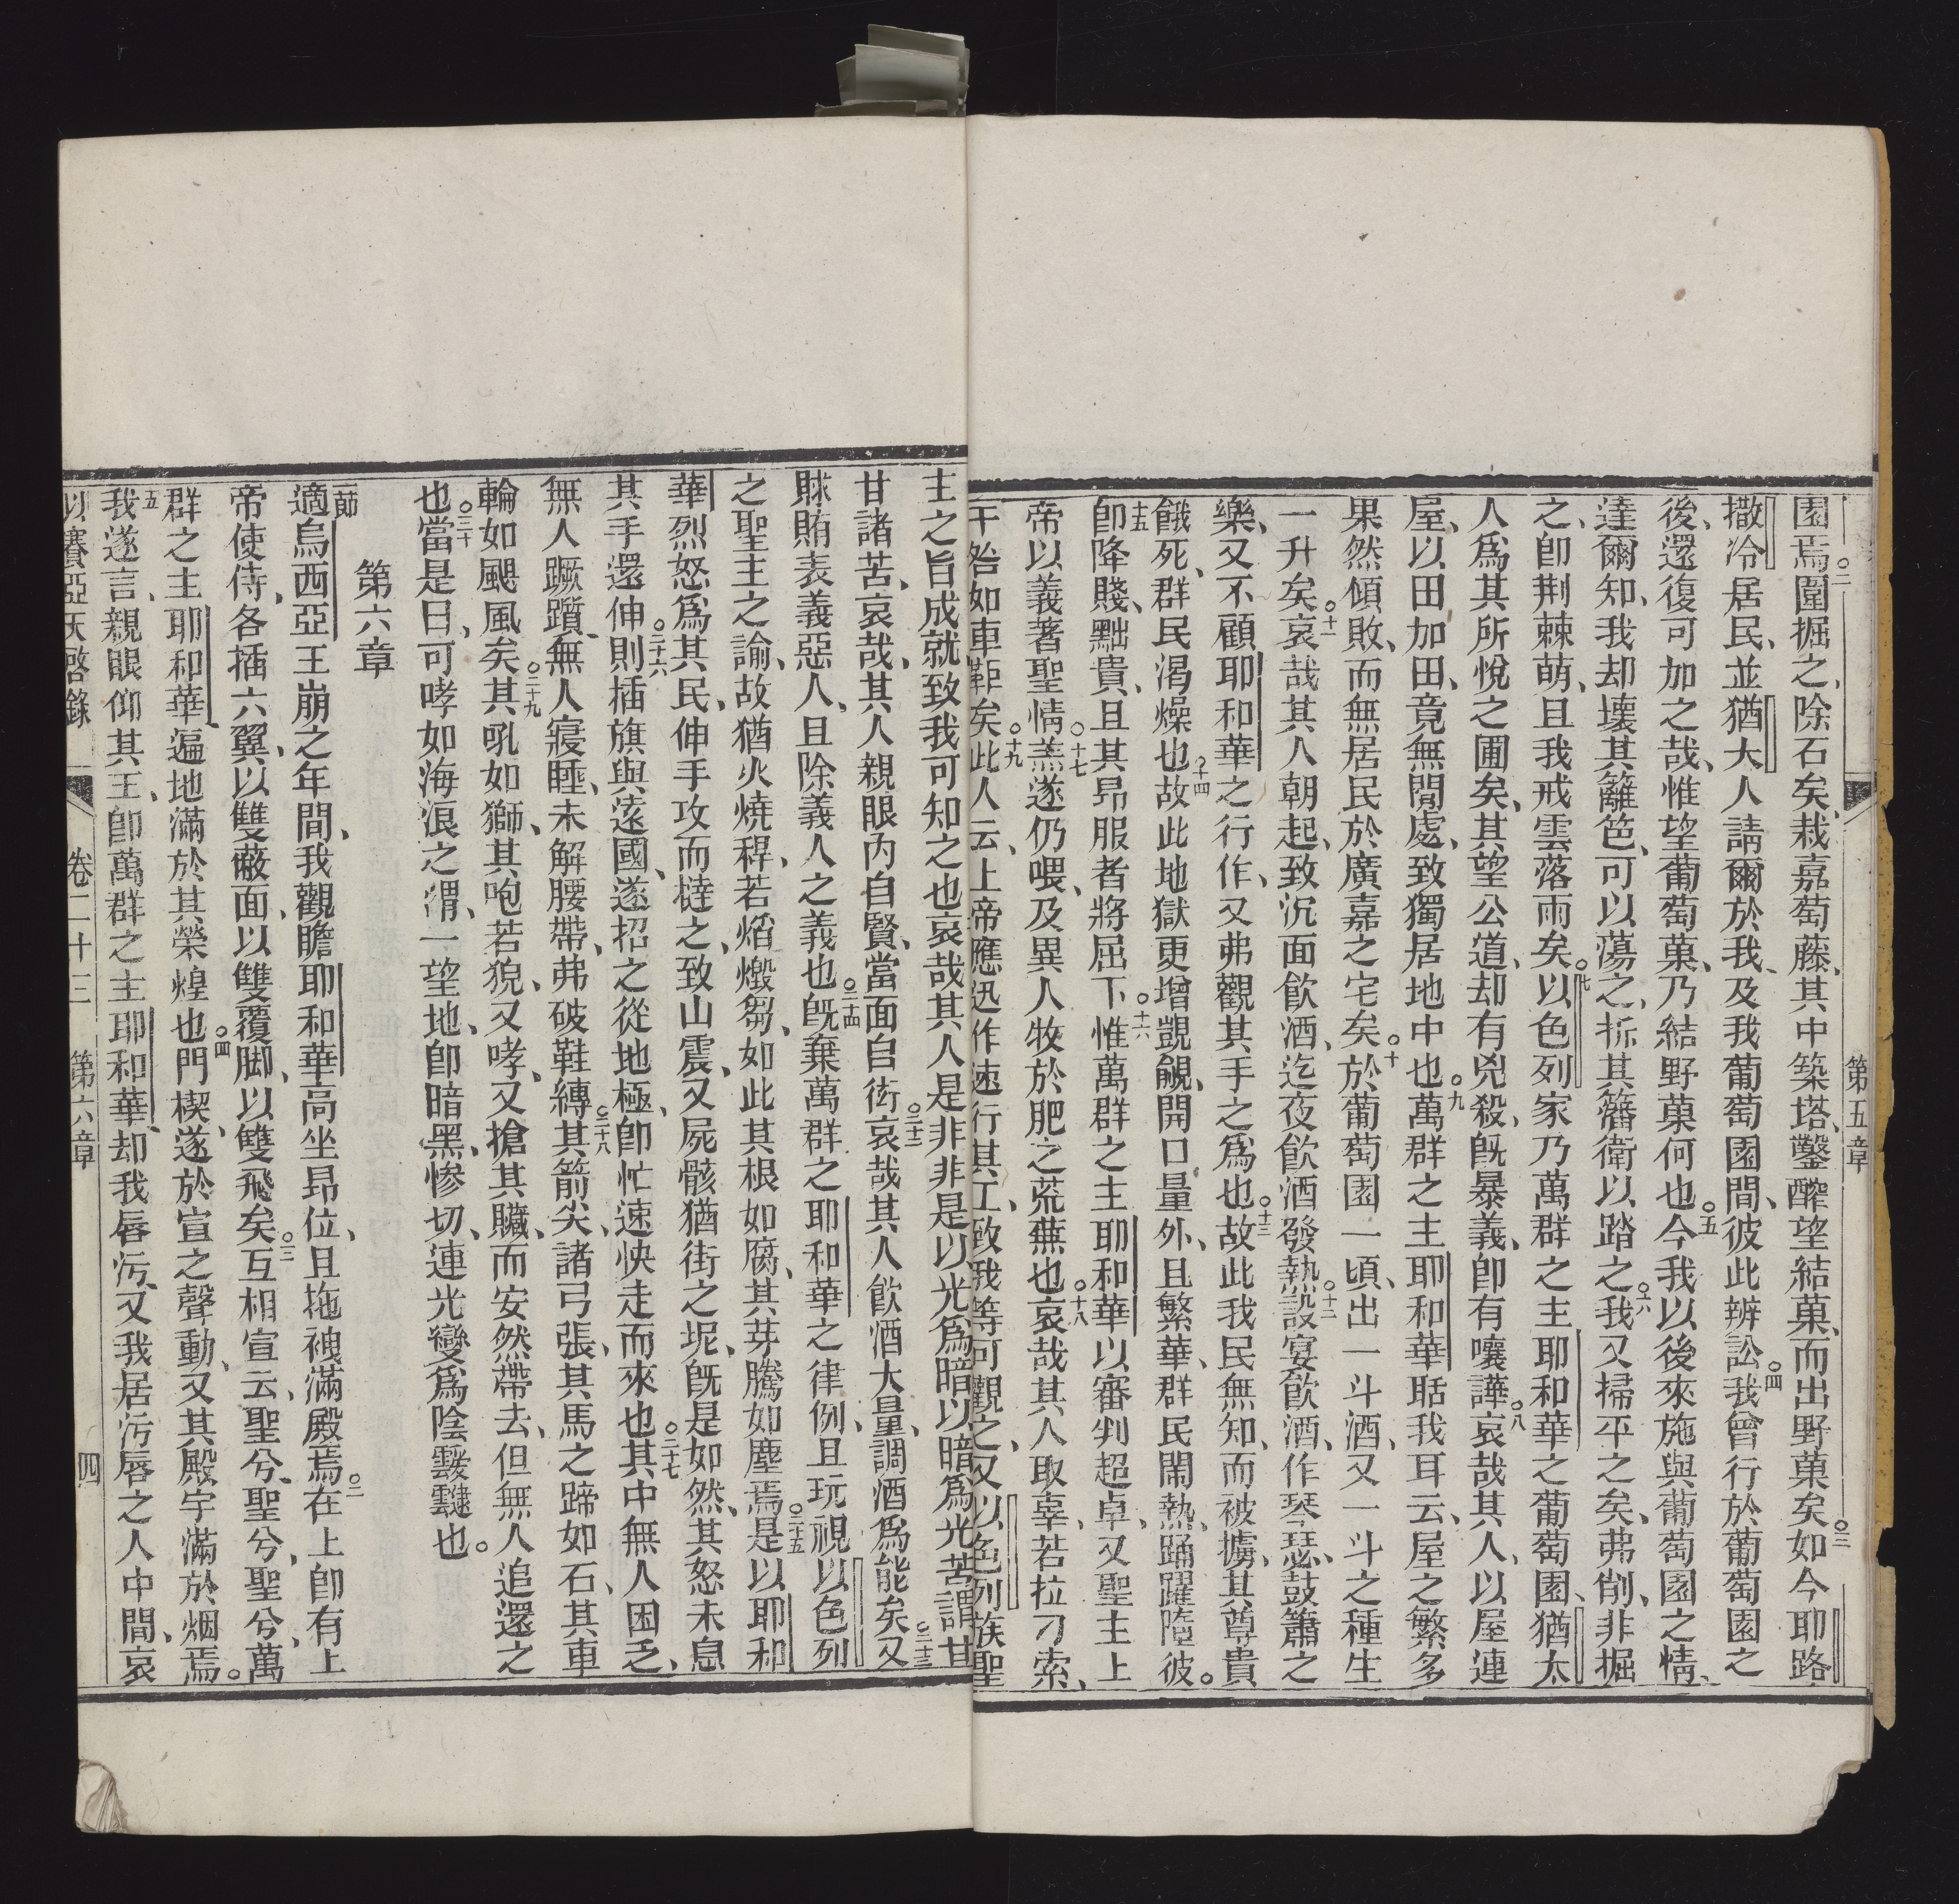 第五章
園焉○二圍掘之、除石矣、栽嘉萄藤、其中築塔、鑿醡望結菓、而出野菓矣○三如今耶路
撒冷居民、並猶大人請爾於我、及我葡萄園間、彼此辨訟○四我曾行於葡萄園之
後、還復可加之哉、惟望葡萄菓、乃結野菓何也○五今我以後來施與葡萄園之情、
達爾知、我却壞其籬笆、可以蕩之、拆其籓衛以踏之○六我又掃平之矣、弗削、非掘
之、卽荆棘萌、且我戒雲落雨矣○七以色列家乃萬群之主耶和華之葡萄園、猶太
人爲其所悅之圃矣、其望公道、却有兇殺、旣暴義、卽有嚷譁○八哀哉其人、以屋連
屋、以田加田、竟無閒處、致獨居地中也○九萬群之主耶和華聒我耳云、屋之繁多
果然傾敗、而無居民於廣嘉之宅矣○十於葡萄園一頃、出一斗酒、又一斗之種生
一升矣○十一哀哉其人朝起、致沉面飮酒、迄夜飮酒發熱○十二設宴飮酒、作琴瑟、鼓簫之
樂、又不顧耶和華之行作、又弗觀其手之爲也○十三故此我民無知、而被擄、其尊貴
餓死、群民渴燥也○十四故此地獄更增覬覦、開口量外、且繁華、群民鬧熱、踊躍墮彼。
十五卽降賤、黜貴、且其昂服者將屈下○十六惟萬群之主耶和華以審判超卓、又聖主上
帝以義著聖情○十七羔遂仍喂、及異人牧於肥之荒蕪也○十八哀哉其人取辜、若拉刁索、
干咎如車鞋矣○十九此人云、上帝應迅作速行其工、致我等可觀之、又以色列族聖
主之旨成就、致我可知之也哀哉其人是非非是以光爲暗以暗爲光苦謂甘
甘諸苦、哀哉、其人親眼內自賢、當面自衒○二十二哀哉其人飮酒大量、調酒爲能矣○二十三又
賕賄表義惡人、且除義人之義也○二十四旣棄萬群之耶和華之律例、且玩視以色列
之聖主之諭、故猶火燒稈、若熖燬芻、如此其根如腐、其芽騰如塵焉○二十五是以耶和
華烈怒爲其民、伸手攻而撻之、致山震、又屍骸猶街之坭、旣是如然、其怒未息
其手還伸○二十六則插旗與遠國、遂招之從地極、卽忙速快走而來也○二十七其中無人困乏、
無人蹶躓、無人寢睡、未解腰帶、弗破鞋縛○二十八其箭尖、諸弓張、其馬之蹄如石、其車
輪如颶風矣○二十九其吼如獅、其咆若猊、又哮、又搶其臟、而安然帶去、但無人追還之
也○三十當是日、可哮如海浪之渭、一望地、卽暗黑、慘切、連光變爲陰靉靆也。
第六章
一節適烏西亞王崩之年間、我觀瞻耶和華高坐昂位、且拖裞滿殿焉○二在上卽有上
帝使侍、各插六翼、以雙蔽面、以雙覆脚、以雙飛矣○三互相宣云、聖兮、聖兮、聖兮、萬
群之主耶和華、遍地滿於其榮煌也○四門楔、遂於宣之聲動、又其殿宇滿於烟焉。
五我遂言、親眼仰其王、卽萬群之主耶和華、却我唇污、又我居污唇之人中間、哀
以賽亞天啓錄 卷二十三 第六章 四